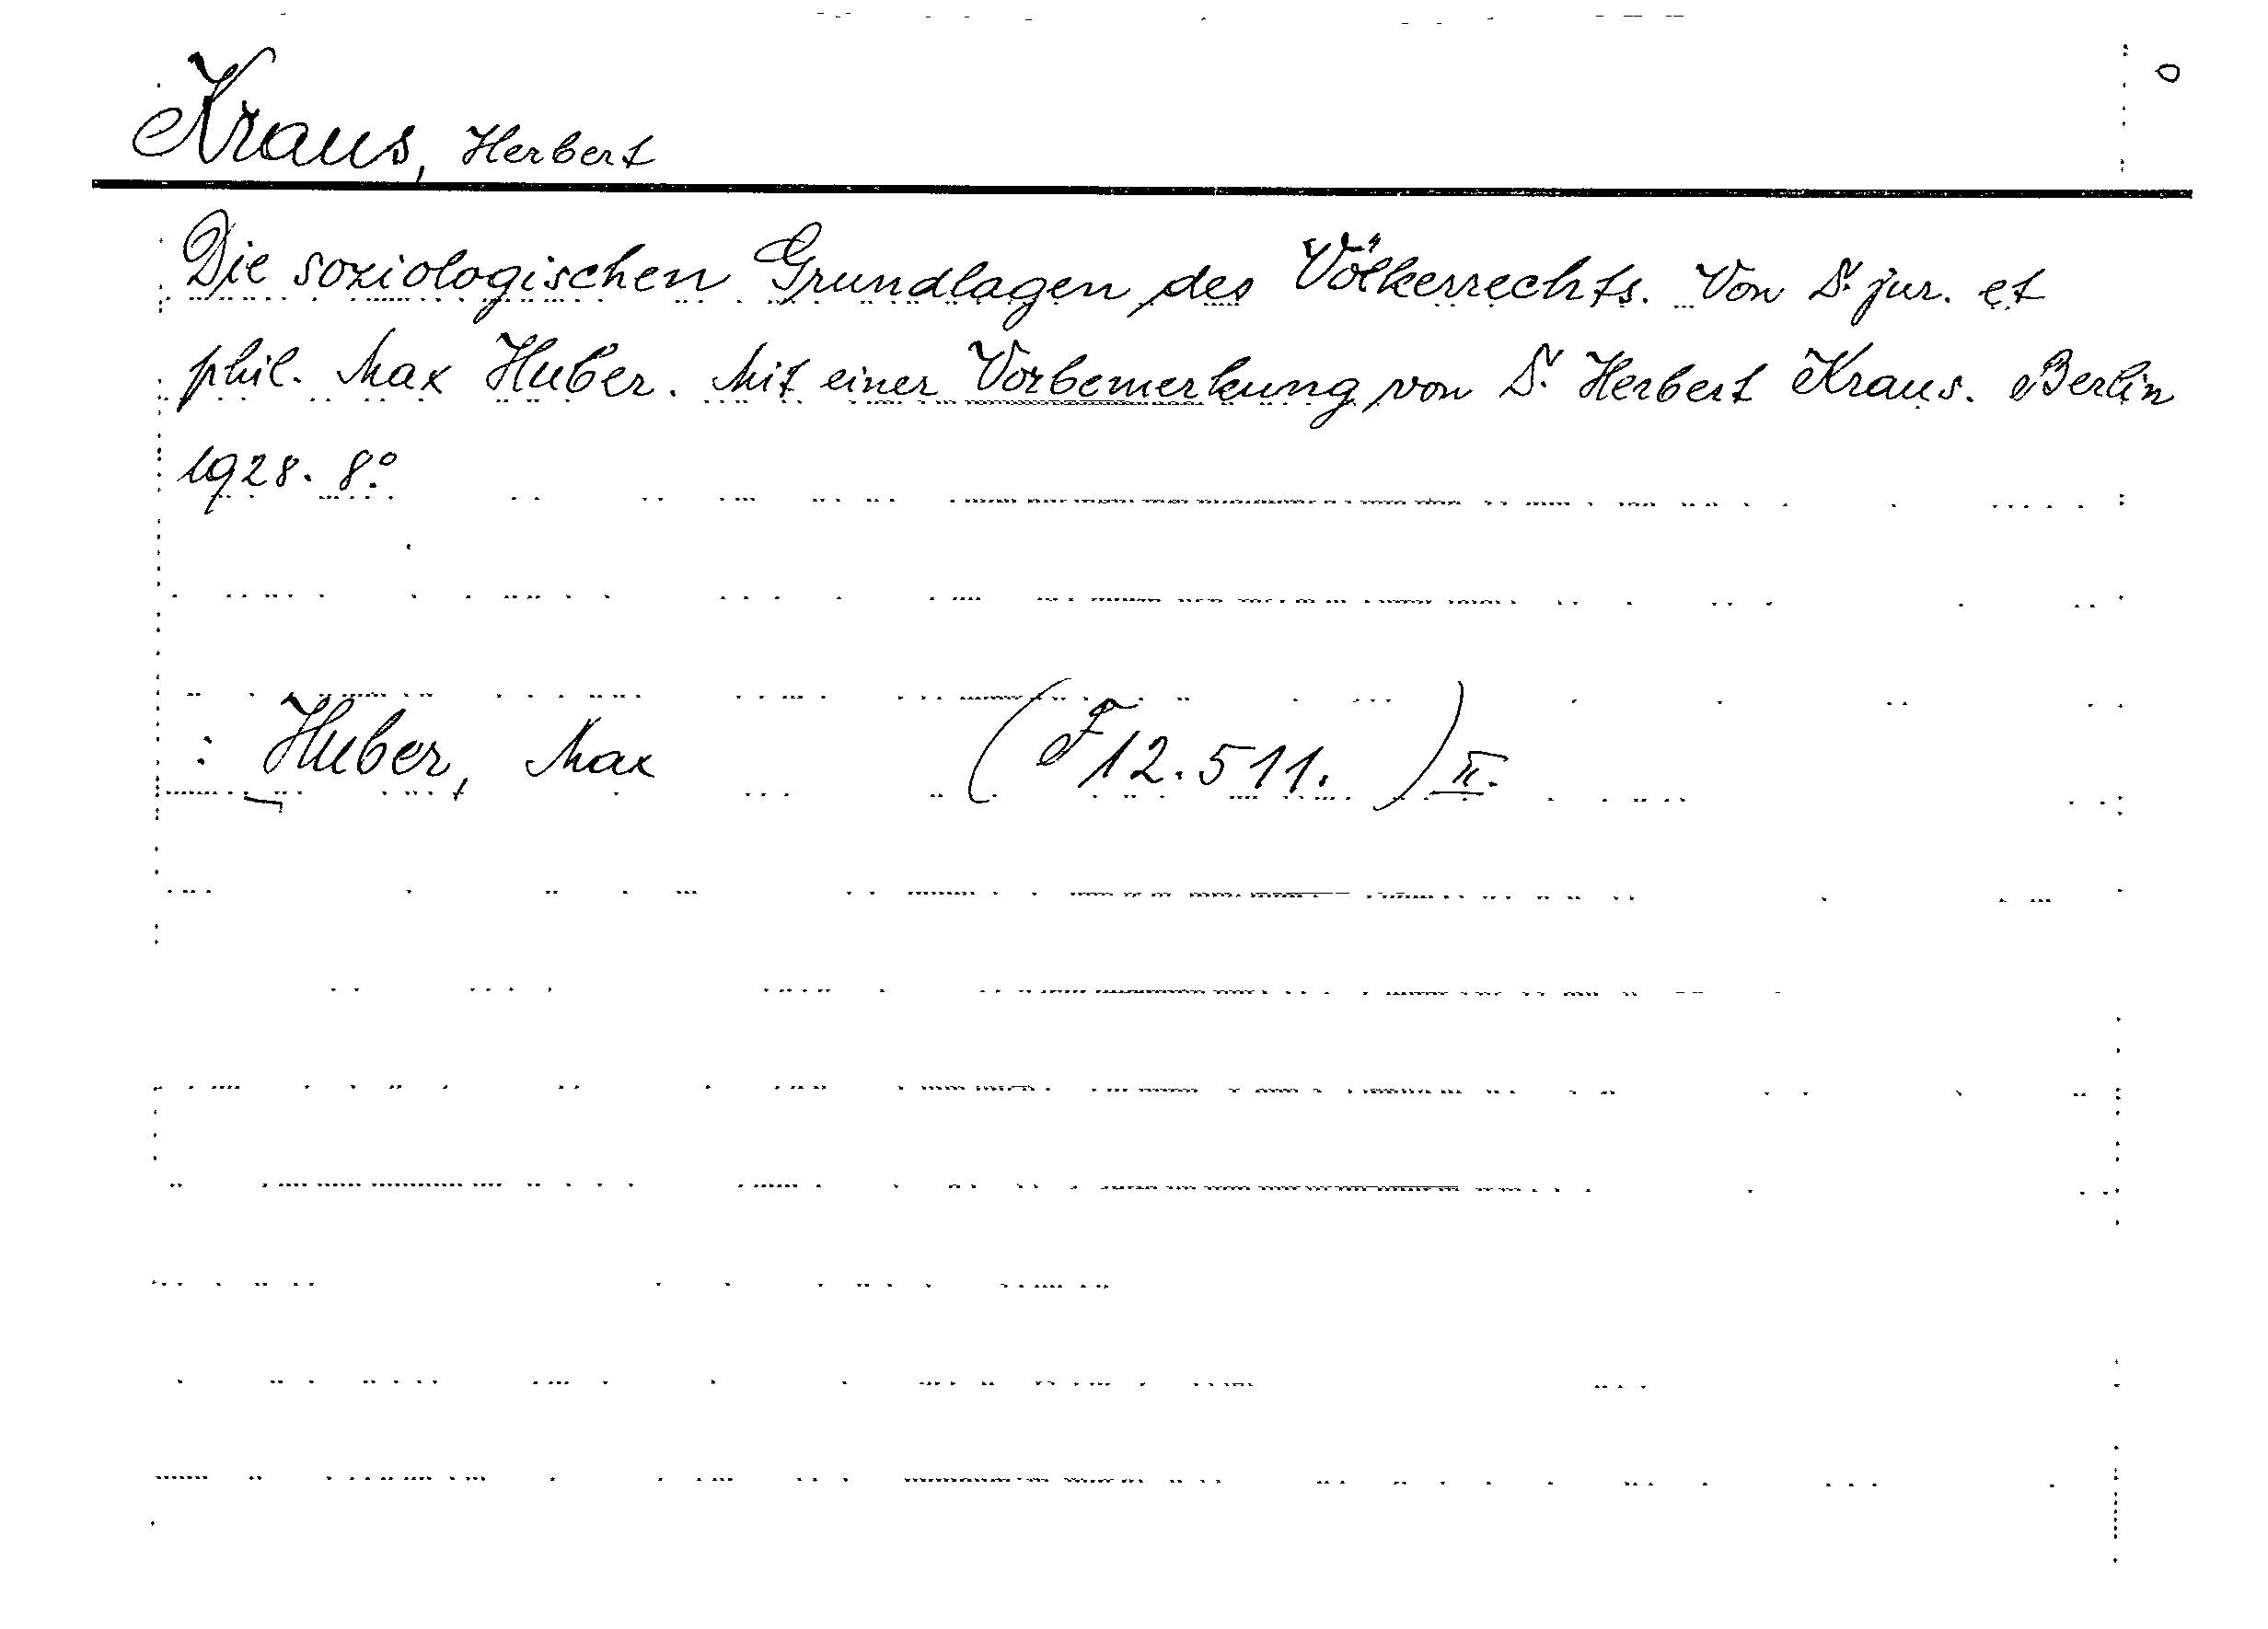 Kraus, Herbert
Die soziologischen Grundlagen des Völkerrechts. Von Dr. jur. et
phil. Max Huber. Mit einer Vorbemerkung von Dr. Herbert Kraus. Berlin
1928. 8°.
: Huber, Max (F 12.511.) II.